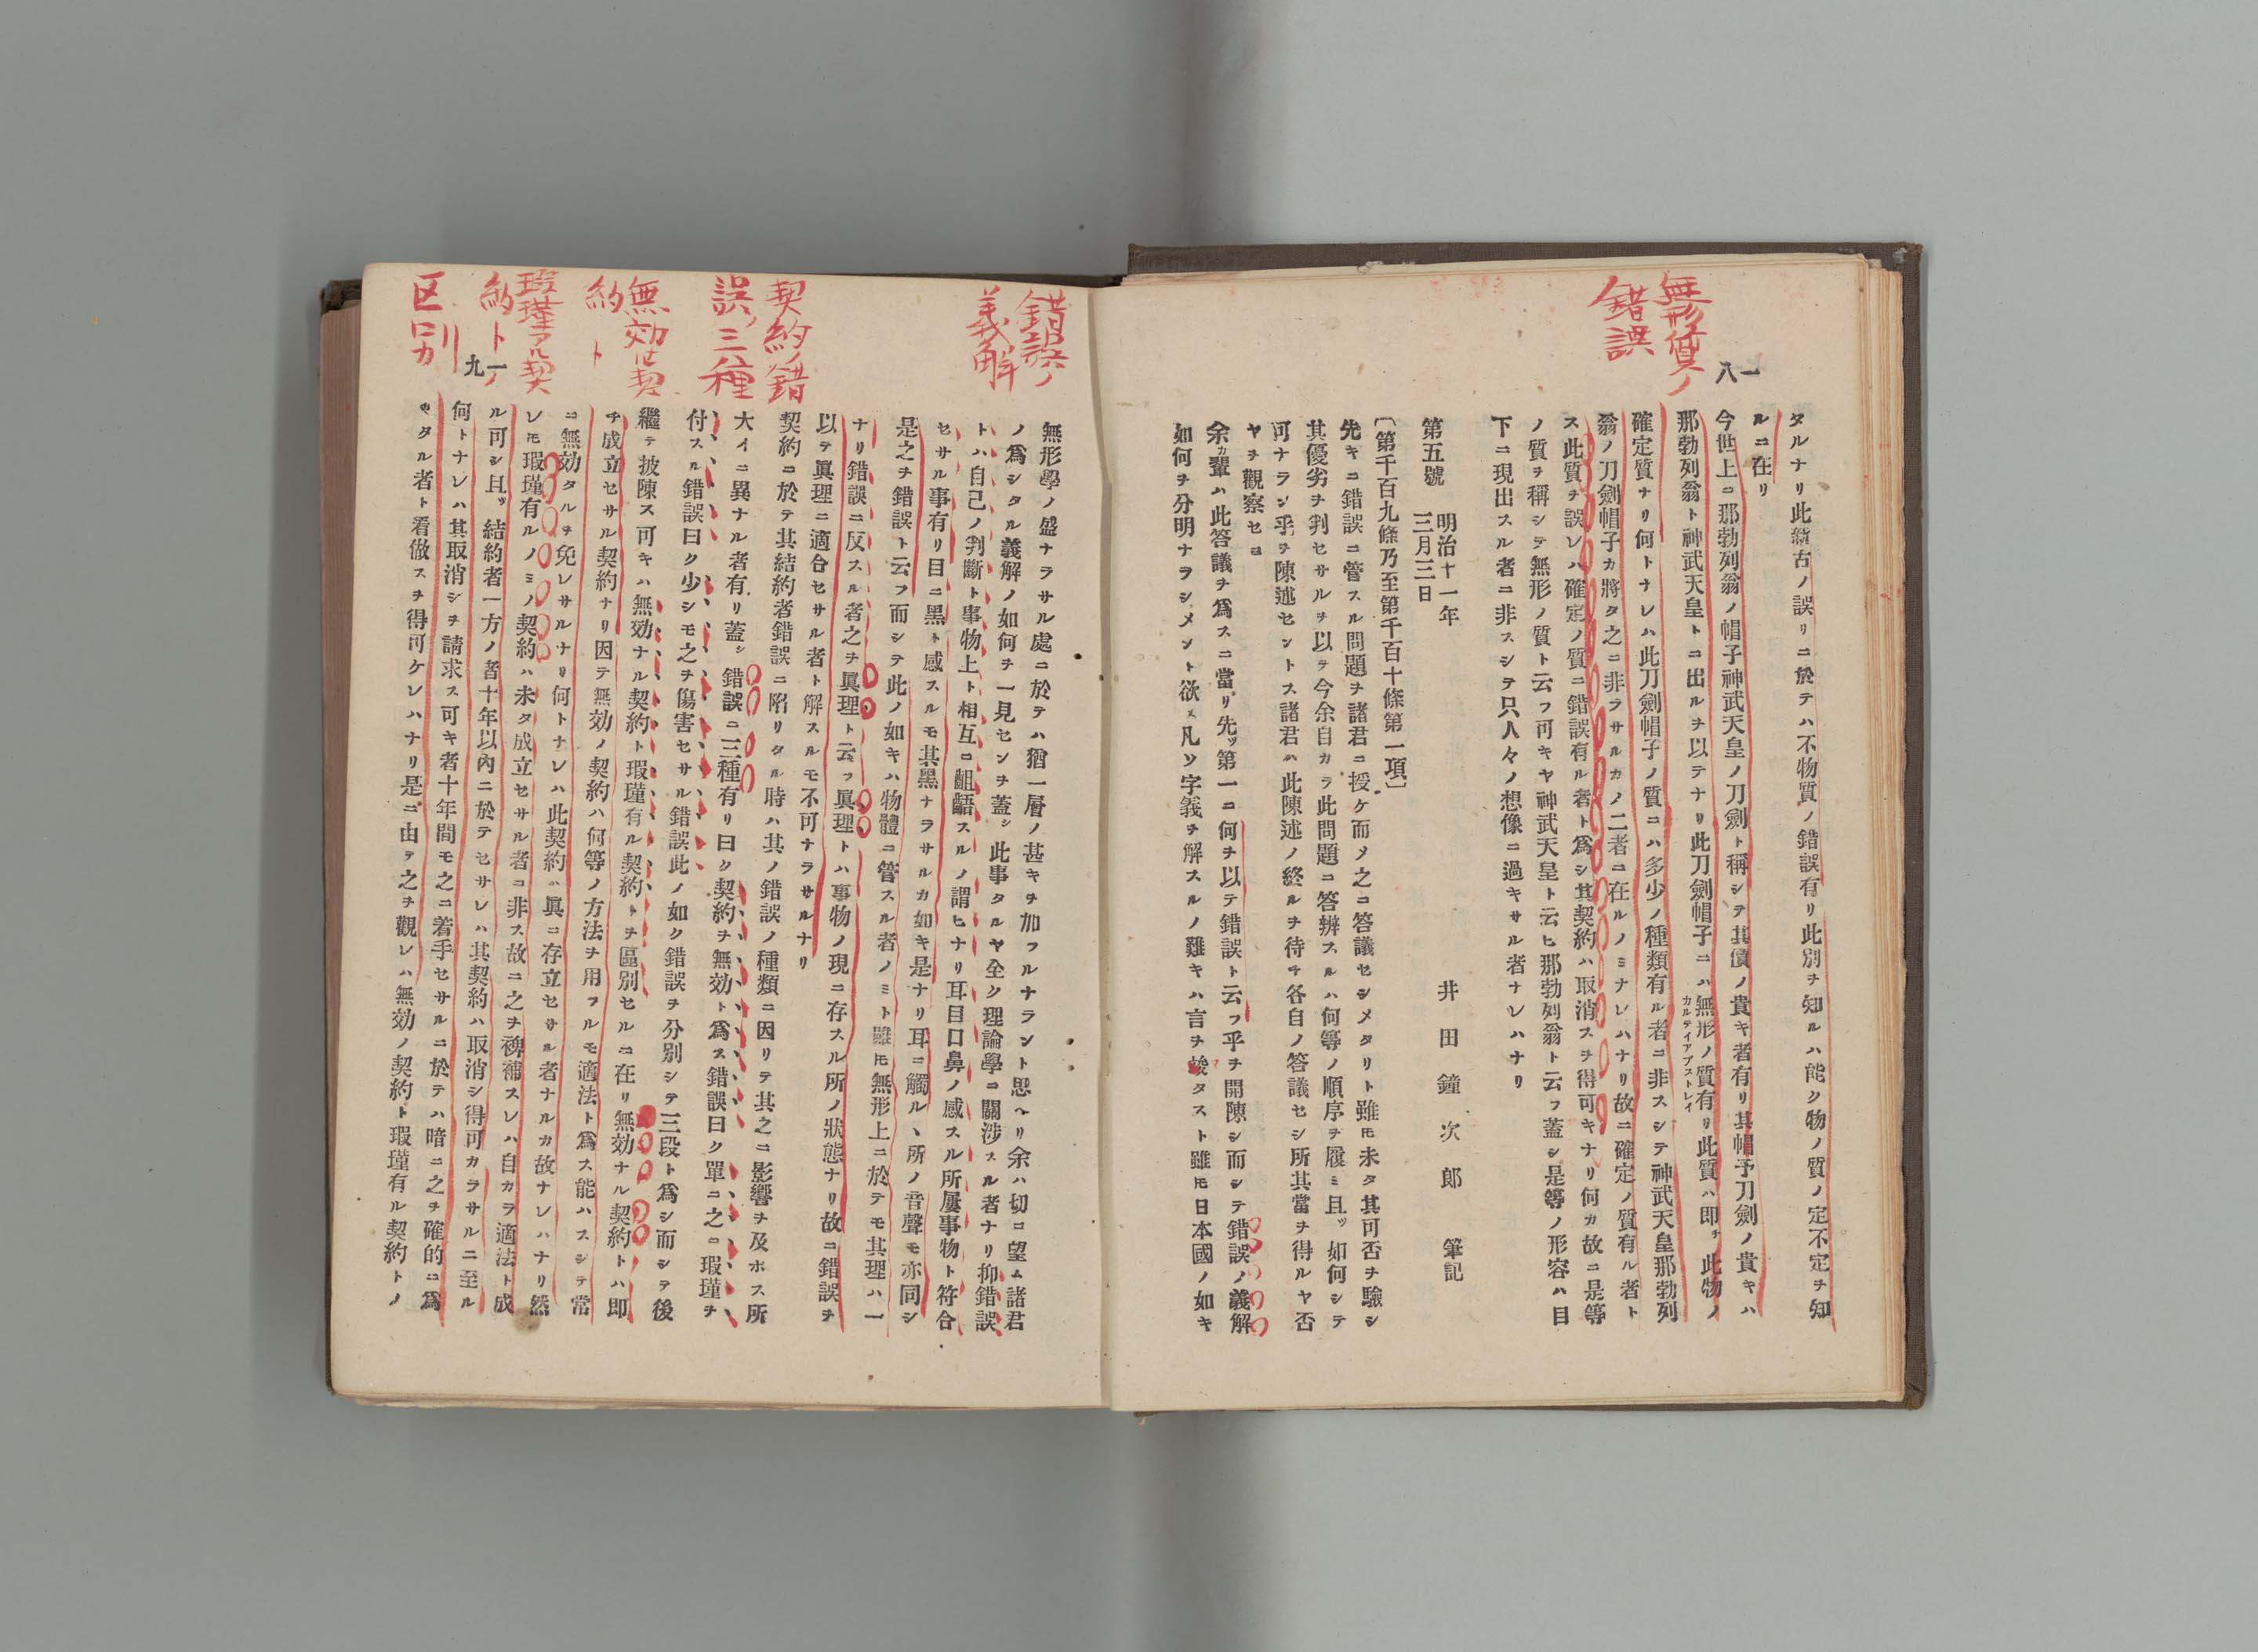 無形質ノ
錯誤
一八
タルナリ此新古ノ誤リニ於テハ不物質ノ錯誤有リ此別ヲ知ルハ能ク物ノ質ノ定不定ヲ知
ルニ在リ
今世上ニ那勃列翁ノ帽子神武天皇ノ刀劍ト稱シテ其價ノ貴キ者有リ其帽子刀劍ノ貴キハ
那勃列翁ト神武天皇トニ出ルヲ以テナリ此刀劍帽子ニハ無形ノ質有リ此質ハ即チ此物ノ
カルテイアブストレイ
確定質ナリ何トナレハ此刀劍帽子ノ質ニハ多少ノ種類有ル者ニ非スシテ神武天皇那勃列
翁ノ刀劍帽子カ將タ之ニ非ラサルカノ二者ニ在ルノミナレハナリ故ニ確定ノ質有ル者ト
ス此質ヲ誤レハ確定ノ質ニ錯誤有ル者ト爲シ其契約ハ取消スヲ得可キナリ何カ故ニ是等
ノ質ヲ稱シテ無形ノ質ト云フ可キヤ神武天皇ト云ヒ那勃列翁ト云フ蓋シ是等ノ形容ハ目
下ニ現出スル者ニ非スシテ只人々ノ想像ニ過キサル者ナレハナリ
第五號　明治十一年
三月三日
井田鐘次郎　筆記
〔第千百九條乃至第千百十條第一項〕
先キニ錯誤ニ管スル問題ヲ諸君ニ授ケ而メ之ニ答議セシメタリト雖モ未タ其可否ヲ驗シ
其優劣ヲ判セサルヲ以テ今余自カラ此問題ニ答辨スルハ何等ノ順序ヲ履ミ且ッ如何シテ
可ナラン乎ヲ陳述セントス諸君ハ此陳述ノ終ルヲ待テ各自ノ答議セシ所其當ヲ得ルヤ否
ヤヲ觀察セヨ
余カ輩ハ此答議ヲ爲スニ當リ先ッ第一ニ何ヲ以テ錯誤ト云フ乎ヲ開陳シ而シテ錯誤ノ義解
如何ヲ分明ナラシメント欲ス凡ソ字義ヲ解スルノ難キハ言ヲ竢タスト雖モ日本國ノ如キ
錯誤ノ
義解
契約ノ錯
誤ノ三種
無効ノ契
約ト
瑕瑾アル契
約トノ
区別
一九
無形學ノ盛ナラサル處ニ於テハ猶一層ノ甚キヲ加フルナラント思ヘリ余ハ切ニ望ム諸君
ノ爲シタル義解ノ如何ヲ一見センヲ蓋シ此事タルヤ全ク理論學ニ關渉スル者ナリ抑錯誤
トハ自己ノ判斷ト事物上ト相互ニ齟齬スルノ謂ヒナリ耳目口鼻ノ感スル所屢事物ト符合
セサル事有リ目ニ黑ト感スルモ其黑ナラサルカ如キ是ナリ耳ニ觸ル丶所ノ音聲モ亦同シ
是之ヲ錯誤ト云フ而シテ此ノ如キハ物體ニ管スル者ノミト雖モ無形上ニ於テモ其理ハ一
ナリ錯誤ニ反スル者之ヲ眞理ト云フ眞理トハ事物ノ現ニ存スル所ノ狀態ナリ故ニ錯誤ヲ
以テ眞理ニ適合セサル者ト解スルモ不可ナラサルナリ
契約ニ於テ其結約者錯誤ニ陷リタル時ハ其ノ錯誤ノ種類ニ因リテ其之ニ影響ヲ及ホス所
大イニ異ナル者有リ蓋シ錯誤ニ三種有リ曰ク契約ヲ無効ト爲ス錯誤曰ク單ニ之ニ瑕瑾ヲ
付スル錯誤曰ク少シモ之ヲ傷害セサル錯誤此ノ如ク錯誤ヲ分別シテ三段ト爲シ而シテ後
繼テ披陳ス可キハ無効ナル契約ト瑕瑾有ル契約トヲ區別セルニ在リ無効ナル契約トハ即
チ成立セサル契約ナリ因テ無効ノ契約ハ何等ノ方法ヲ用フルモ適法ト爲ス能ハスシテ常
ニ無効タルヲ免レサルナリ何トナレハ此契約ハ眞ニ存立セサル者ナルカ故ナレハナリ然
レモ瑕瑾有ルノミノ契約ハ未タ成立セサル者ニ非ス故ニ之ヲ裨補スレハ自カラ適法ト成
ル可シ且ッ結約者一方ノ者十年以內ニ於テセサレハ其契約ハ取消シ得可カラサルニ至ル
何トナレハ其取消シヲ請求ス可キ者十年間モ之ニ着手セサルニ於テハ暗ニ之ヲ確的ニ爲
シタル者ト看做スヲ得可ケレハナリ是ニ由テ之ヲ觀レハ無効ノ契約ト瑕瑾有ル契約トノ